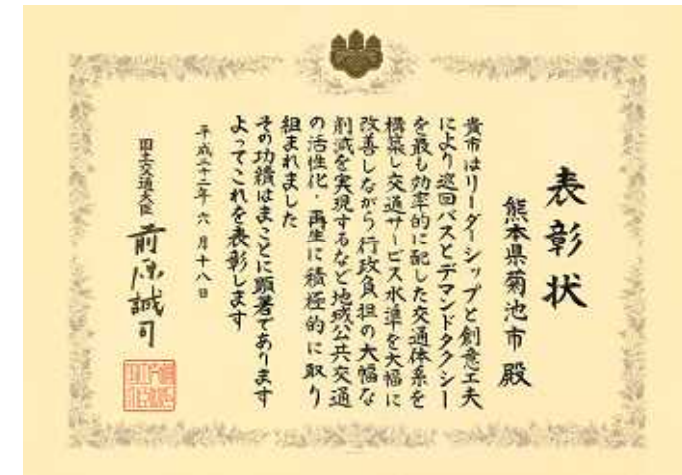 表彰状
熊本県菊池市 殿
貴市はリーダーシップと創意工夫
により巡回バスとデマンドタクシー
を最も効率的に配した交通体系を
構築し交通サービス水準を大幅に
改善しながら行政負担の大幅な
削減を実現するなど地域公共交通
の活性化・再生に積極的に取り
組まれました
その功績はまことに顕著であります
よってこれを表彰します
平成二十二年 六 月 十八 日
国土交通大臣 前原誠司